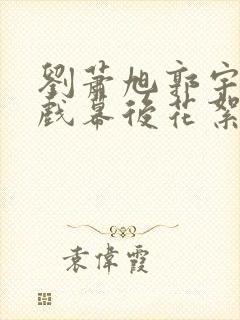 劉蕭旭郭宇
戲幕後花絮
袁偉霞